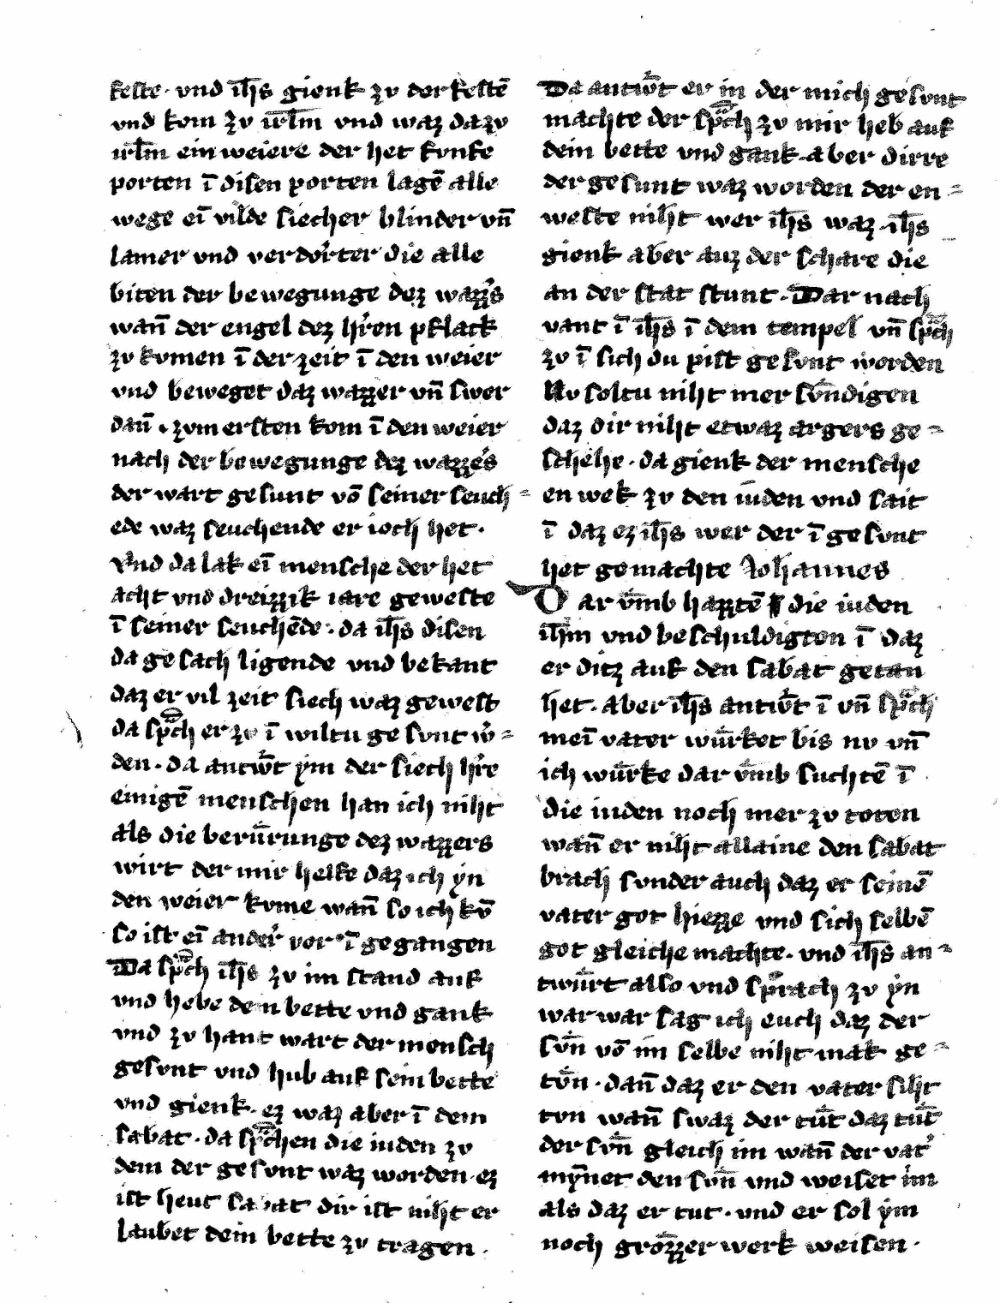 feste · vnd ih̄s gienk zv der festē
vnd kom zv irl̄m vnd waz dazv
irl̄m ein weiere der het fvnfe
porten ī disen porten lagē alle
wege eī vilde siecher blinder vn̄
lamer vnd verdorrter die alle
biten der bewegunge dez wazzers
wan̄ der engel dez h̄ren pflack
zv kvmen ī der zeit ī den weier
vnd beweget daz wazzer vn̄ swer
dan̄ · zvm ersten kom ī den weier
nach der bewegunge dez wazzers
der wart gesunt vō seiner seuch⸗
ede waz seuchende er ioch het ·
Vnd da lak eī mensche der het
acht vnd dreizzik iare geweste
ī seiner seuchēde · da ih̄s disen
da gesach ligende vnd bekant
daz er vil zeit siech waz gewest
da sp̄ch er zv ī wiltu gesvnt w̉⸗
den · da antw̄t ym der siech h̄re
einigē menschen han ich niht
als die berürunge dez wazzers
wirt der mir helfe daz ich yn
den weier kvme wan̄ so ich kv̄
so ist eī ander vor ī gegangen
Da sp̄ch ih̄s zv im stand auf
vnd hebe dein bette vnd gank
vnd zv hant wart der mensch
gesvnt vnd hub auf sein bette
vnd gienk · ez waz aber ī dem
sabat · da sp̄chen die iuden zv
dem der gesvnt waz worden · ez
ist heut sabat dir ist niht er
laubet dein bette zv tragen ·
Da antw̄t er in der mich gesvnt
machte der sp̄ch zv mir heb auf
dein bette vnd gank · aber dirre
der gesunt waz worden der en⸗
weste niht wer ih̄s waz · ih̄s
gienk aber auz der schare die
an der stat stunt · Dar nach
vant ī ih̄s ī dem tempel vn̄ sp̄ch
zv ī sich du pist gesvnt worden
Nv soltu niht mer svndigen
daz dir niht etwaz argers ge⸗
schehe · da gienk der mensche
en wek zv den iuden vnd sait
ī daz ez ih̄s wer der ī gesvnt
het gemachte Johannes
Dar vmb hazztē die iuden
ih̄m vnd beschuldigten ī daz
er ditz auf den sabat getan
het · aber ih̄s antw̄t ī vn̄ sp̄ch
meī vater würket bis nv vn̄
ich würke dar vmb suchtē ī
die iuden noch mer zv toten
wan̄ er niht allaine den sabat
brach sunder auch daz er seinē
vater got hiezze vnd sich selbē
got gleiche machte · vnd ih̄s an⸗
twürt also vnd sprach zv yn
war war sag ich euch daz der
svn vō im selbe niht mak ge⸗
tvn · dan̄ daz er den vater siht
ton wan̄ swaz der tüt daz tüt
der svn gleich im wan̄ der vat̉
mynnet den svn vnd weiset im
als daz er tut · vnd er sol ym
noch grozzer werk weisen ·